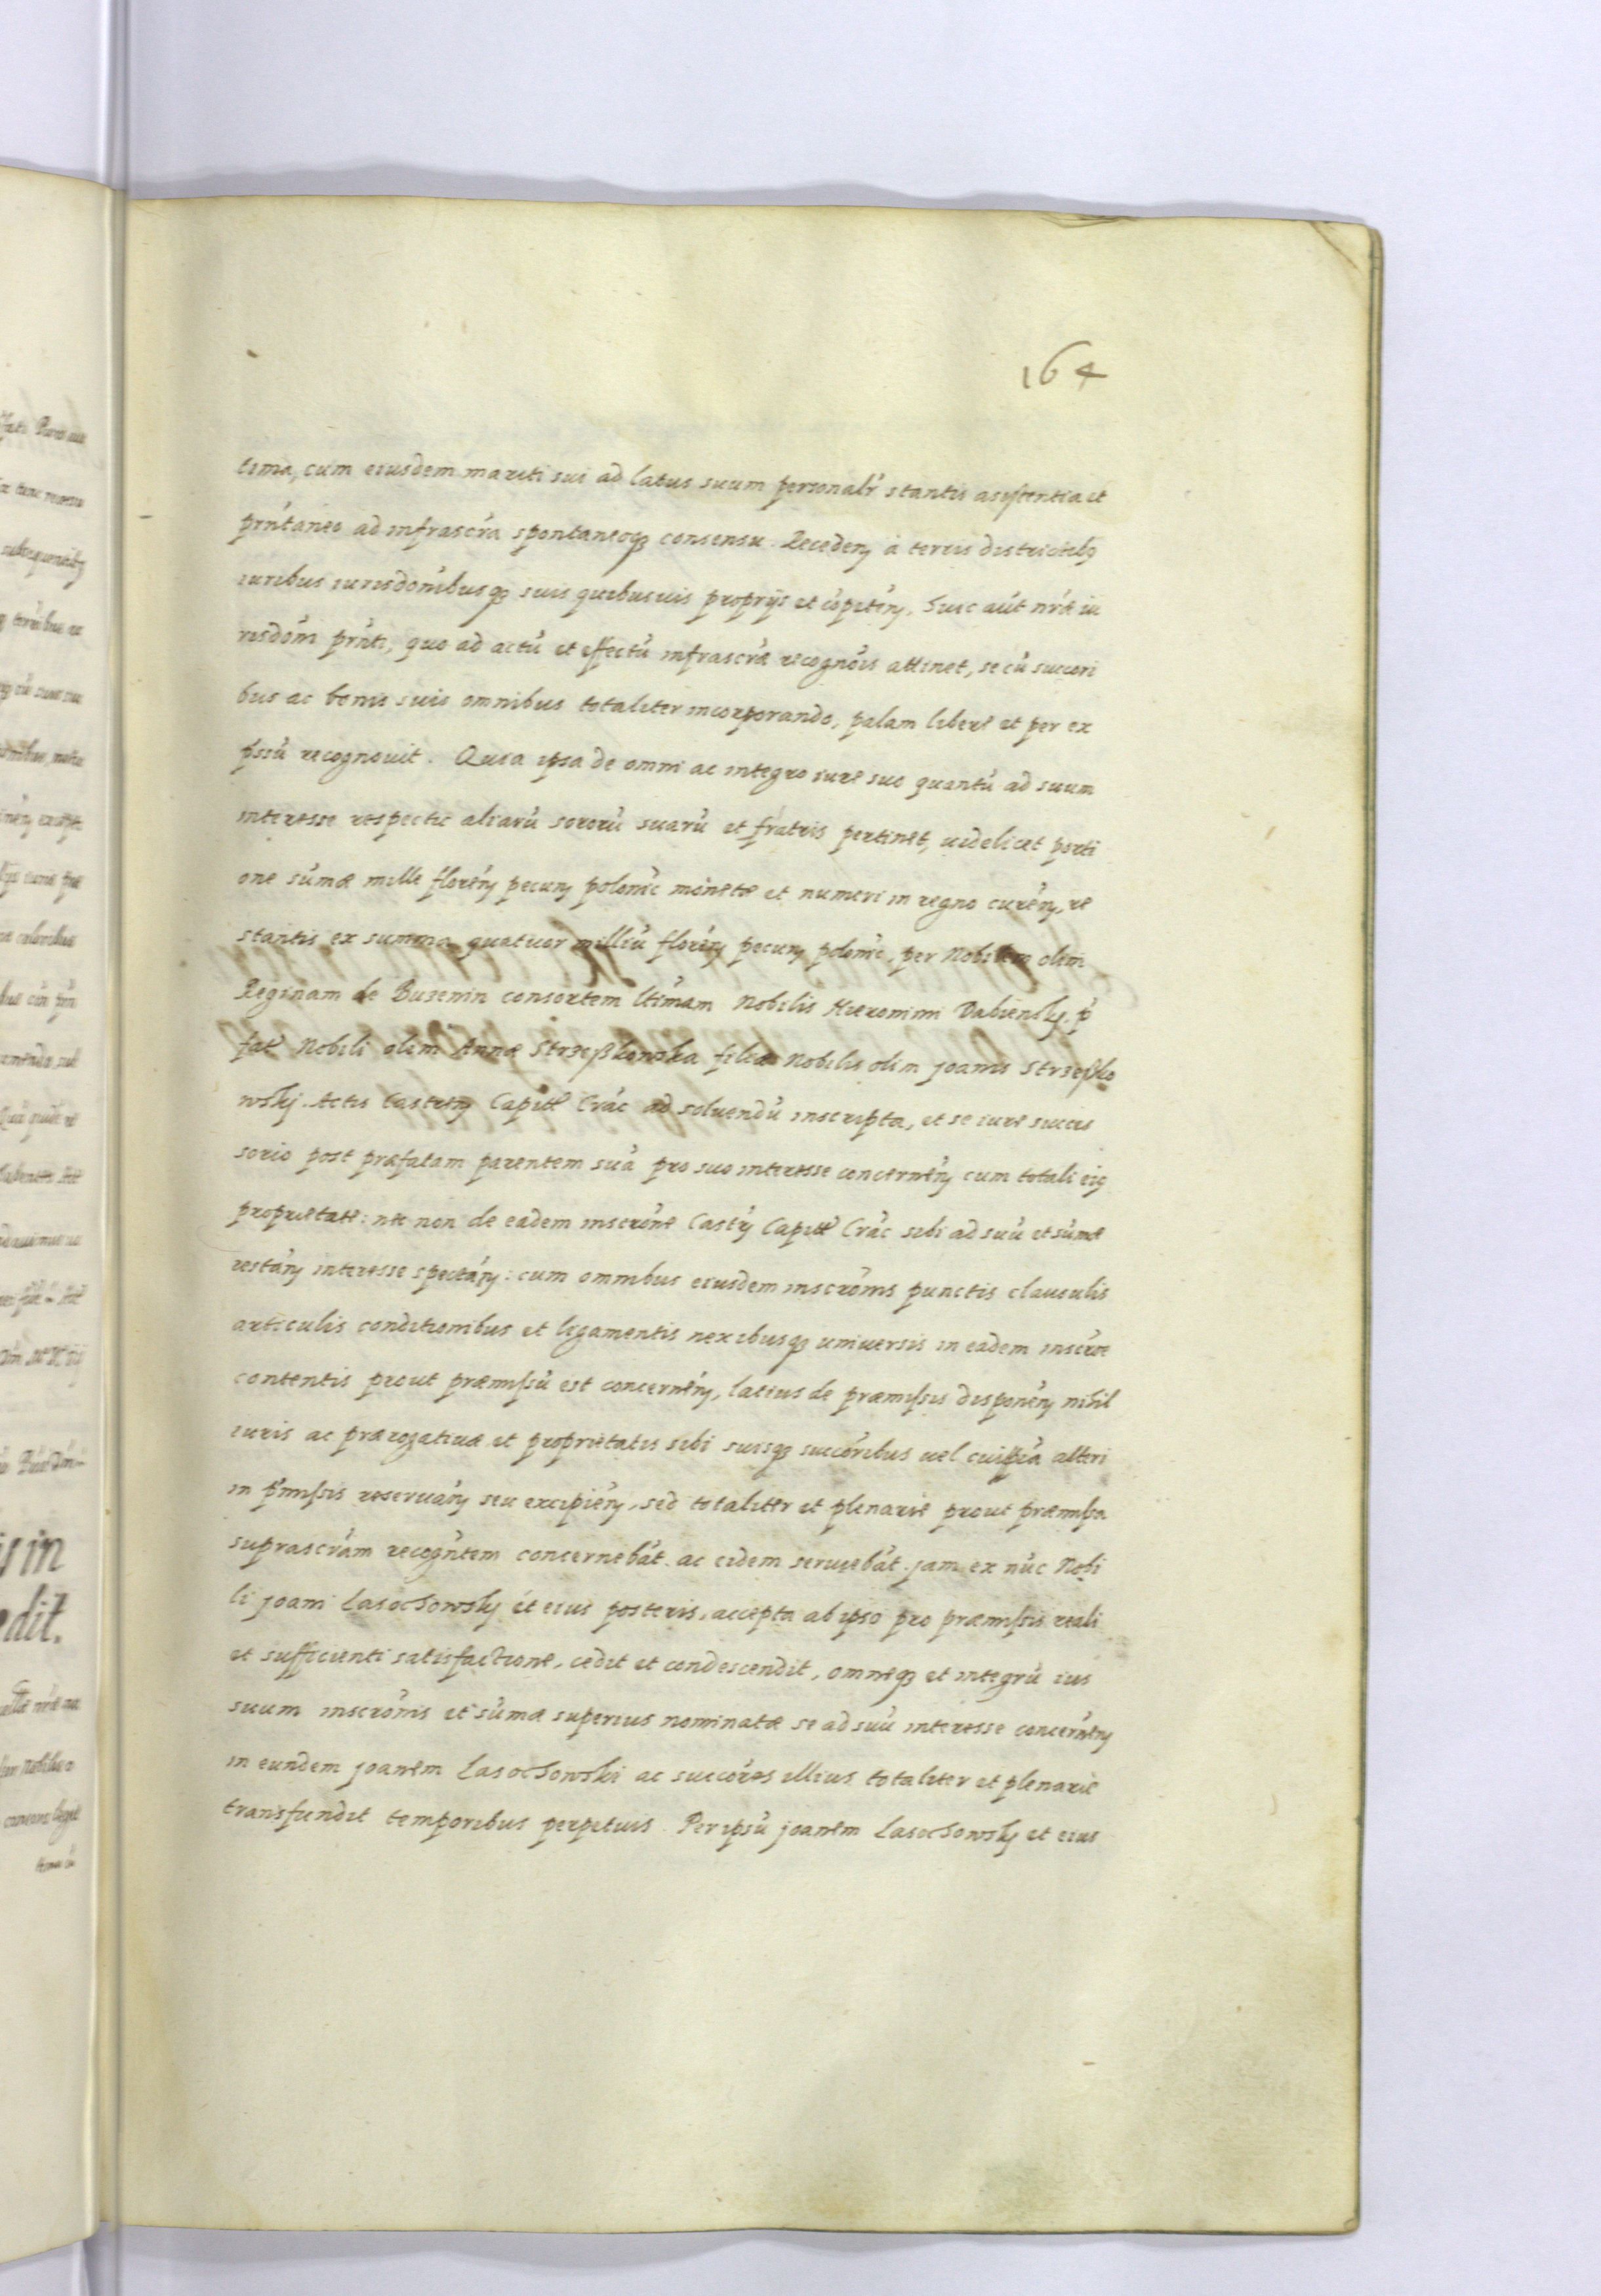 164
tima, cum eiusdem mariti sui ad latus suum personalr stantis assistentia et
prńtaneo ad infrascra spontaneoq consensu. Receden a terris districtibq
iuribus iurisdonibusq suis quibusuis proprijs et copeten, huic aut nrae iu
risdom prnti, quo ad actu et effectu infrascrae recognois attinet, se cu succori
bus ac bonis suis omnibus totaliter incorporando, palam libere et per ex
pssu recognouit. Quia ipsa de omni ac integro iure suo quantu ad suum
interesse respectu aliaru sororu suaru et fratris pertinet, uidelicet porti
one sumae mille floren pecun polonic monetae et numeri in regno curen, re
stantis ex summa quatuor milliu floren pecun polonic, per Nobilem olim
Reginam de Buzenin consortem ltimam Nobilis Hieronimi Dabiensky. p
fat Nobili olim Annae Strzeßkowska filiae Nobilis olim Joanis Strzeßko
wskj. Actis Castren Capitl Crac ad soluendu inscripta, et se iure succes
sorio post praefatam parentem sua pro suo interesse concernen cum totali eiq
proprietate: nec non de eadem inscrone Castrn Capitl Crac sibi ad suu et sumae
restan interesse spectan: cum omnibus eiusdem inscronis punctis clausulis
articulis conditionibus et ligamentis nexibusq uniuersis in eadem inscroe
contentis prout praemissu est concernen, latius de praemissis disponen nihil
iuris ac praerogatiuae et proprietatis sibi suisq succoribus uel cuipia alteri
in pmissis reseruan seu excipien, sed totaliter et plenarie prout praemissa
suprascram recogntem concernebat ac eidem seruiebat. jam ex nuc Nobi
li Joani Lasochowsky et eius posteris, accepta ab ipso pro praemissis reali
et sufficienti satisfactione, cedit et condescendit, omneq et integru ius
suum inscronis et sumae superius nominatae se ad suu interesse concernen
in eundem Joanem Lasochowski ac succores illius totaliter et plenarie
transfundit temporibus perpetuis. Per ipsu Joanem Lasochowsky et eius